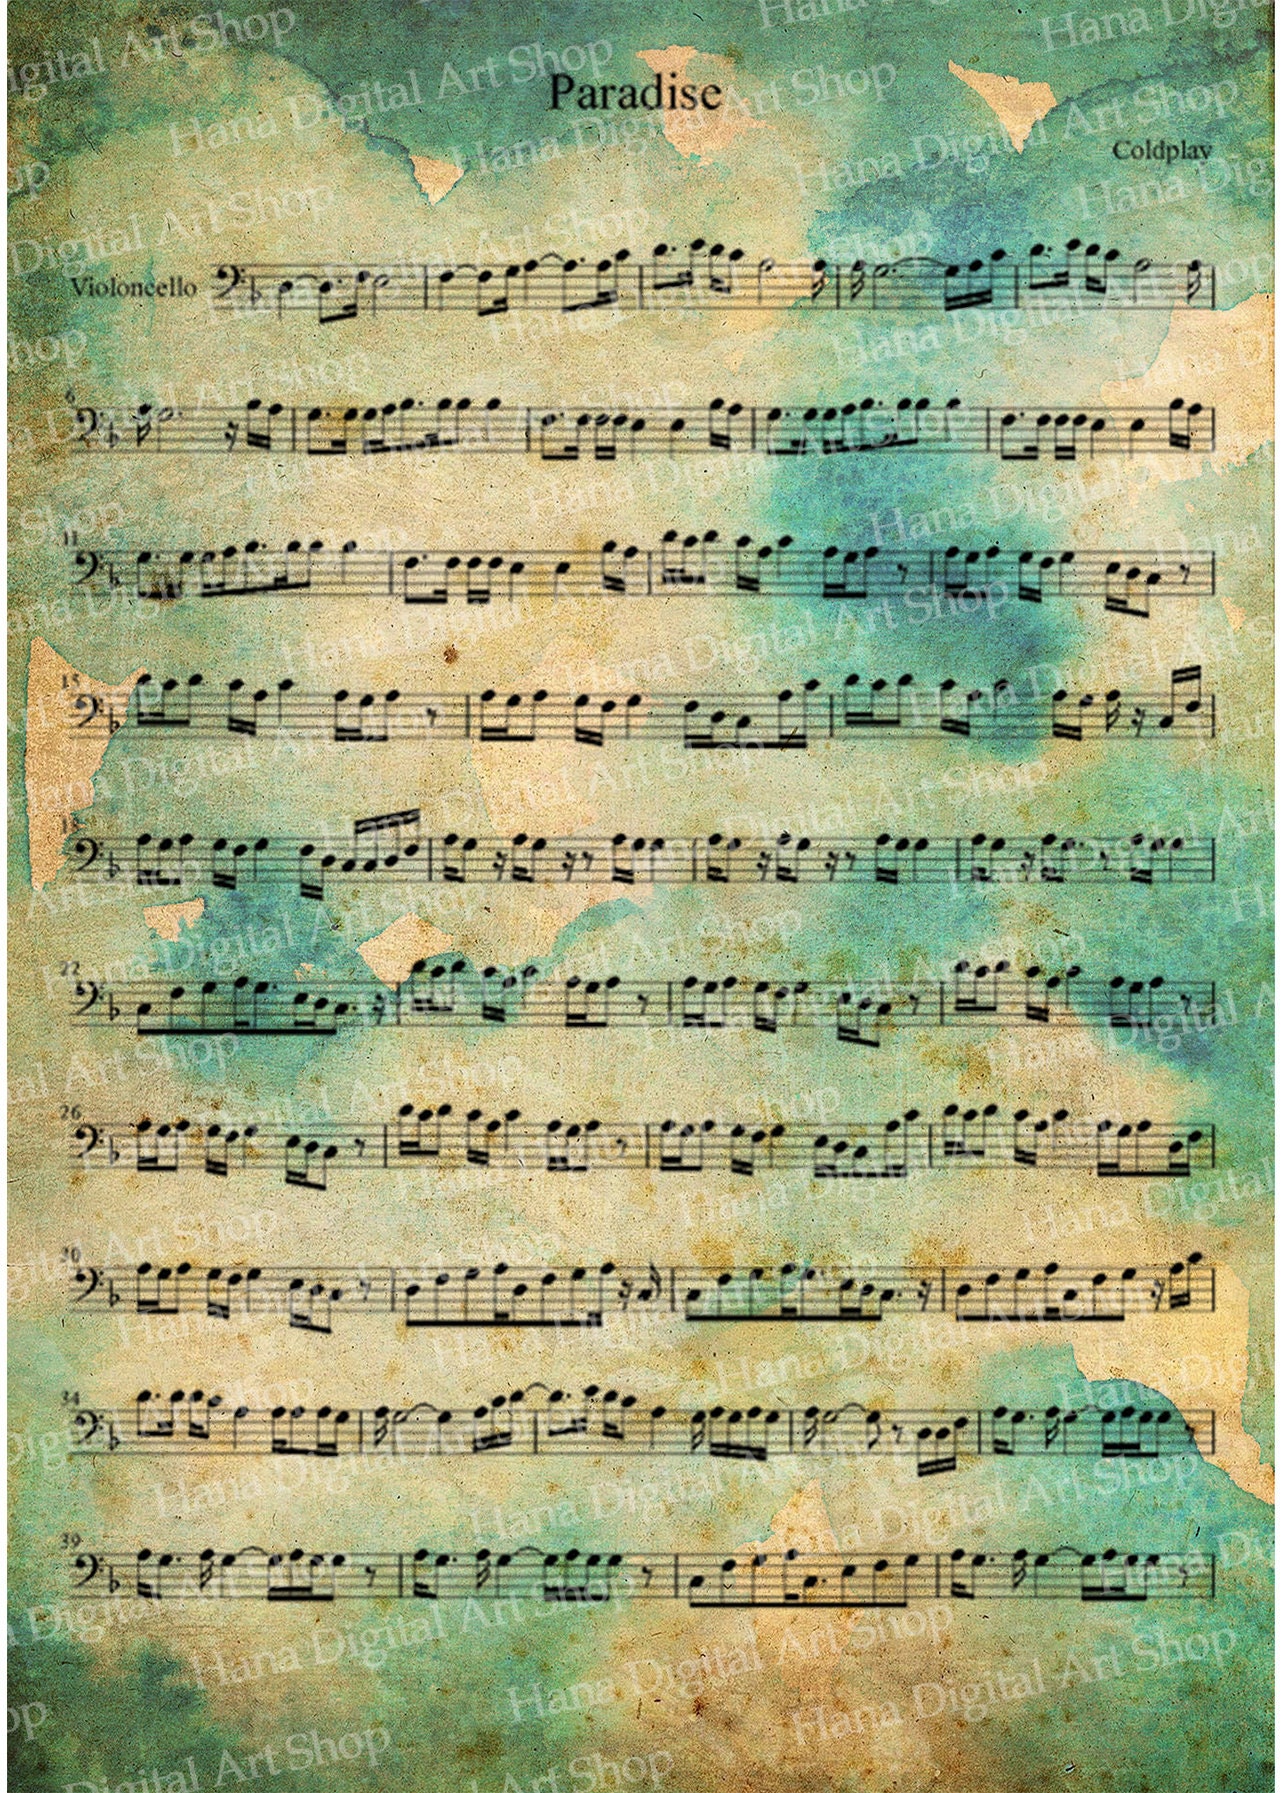 Paradise
Coldplay
Violoncello
6
11
15
18
22
26
30
34
39
Hana Digital Art Shop